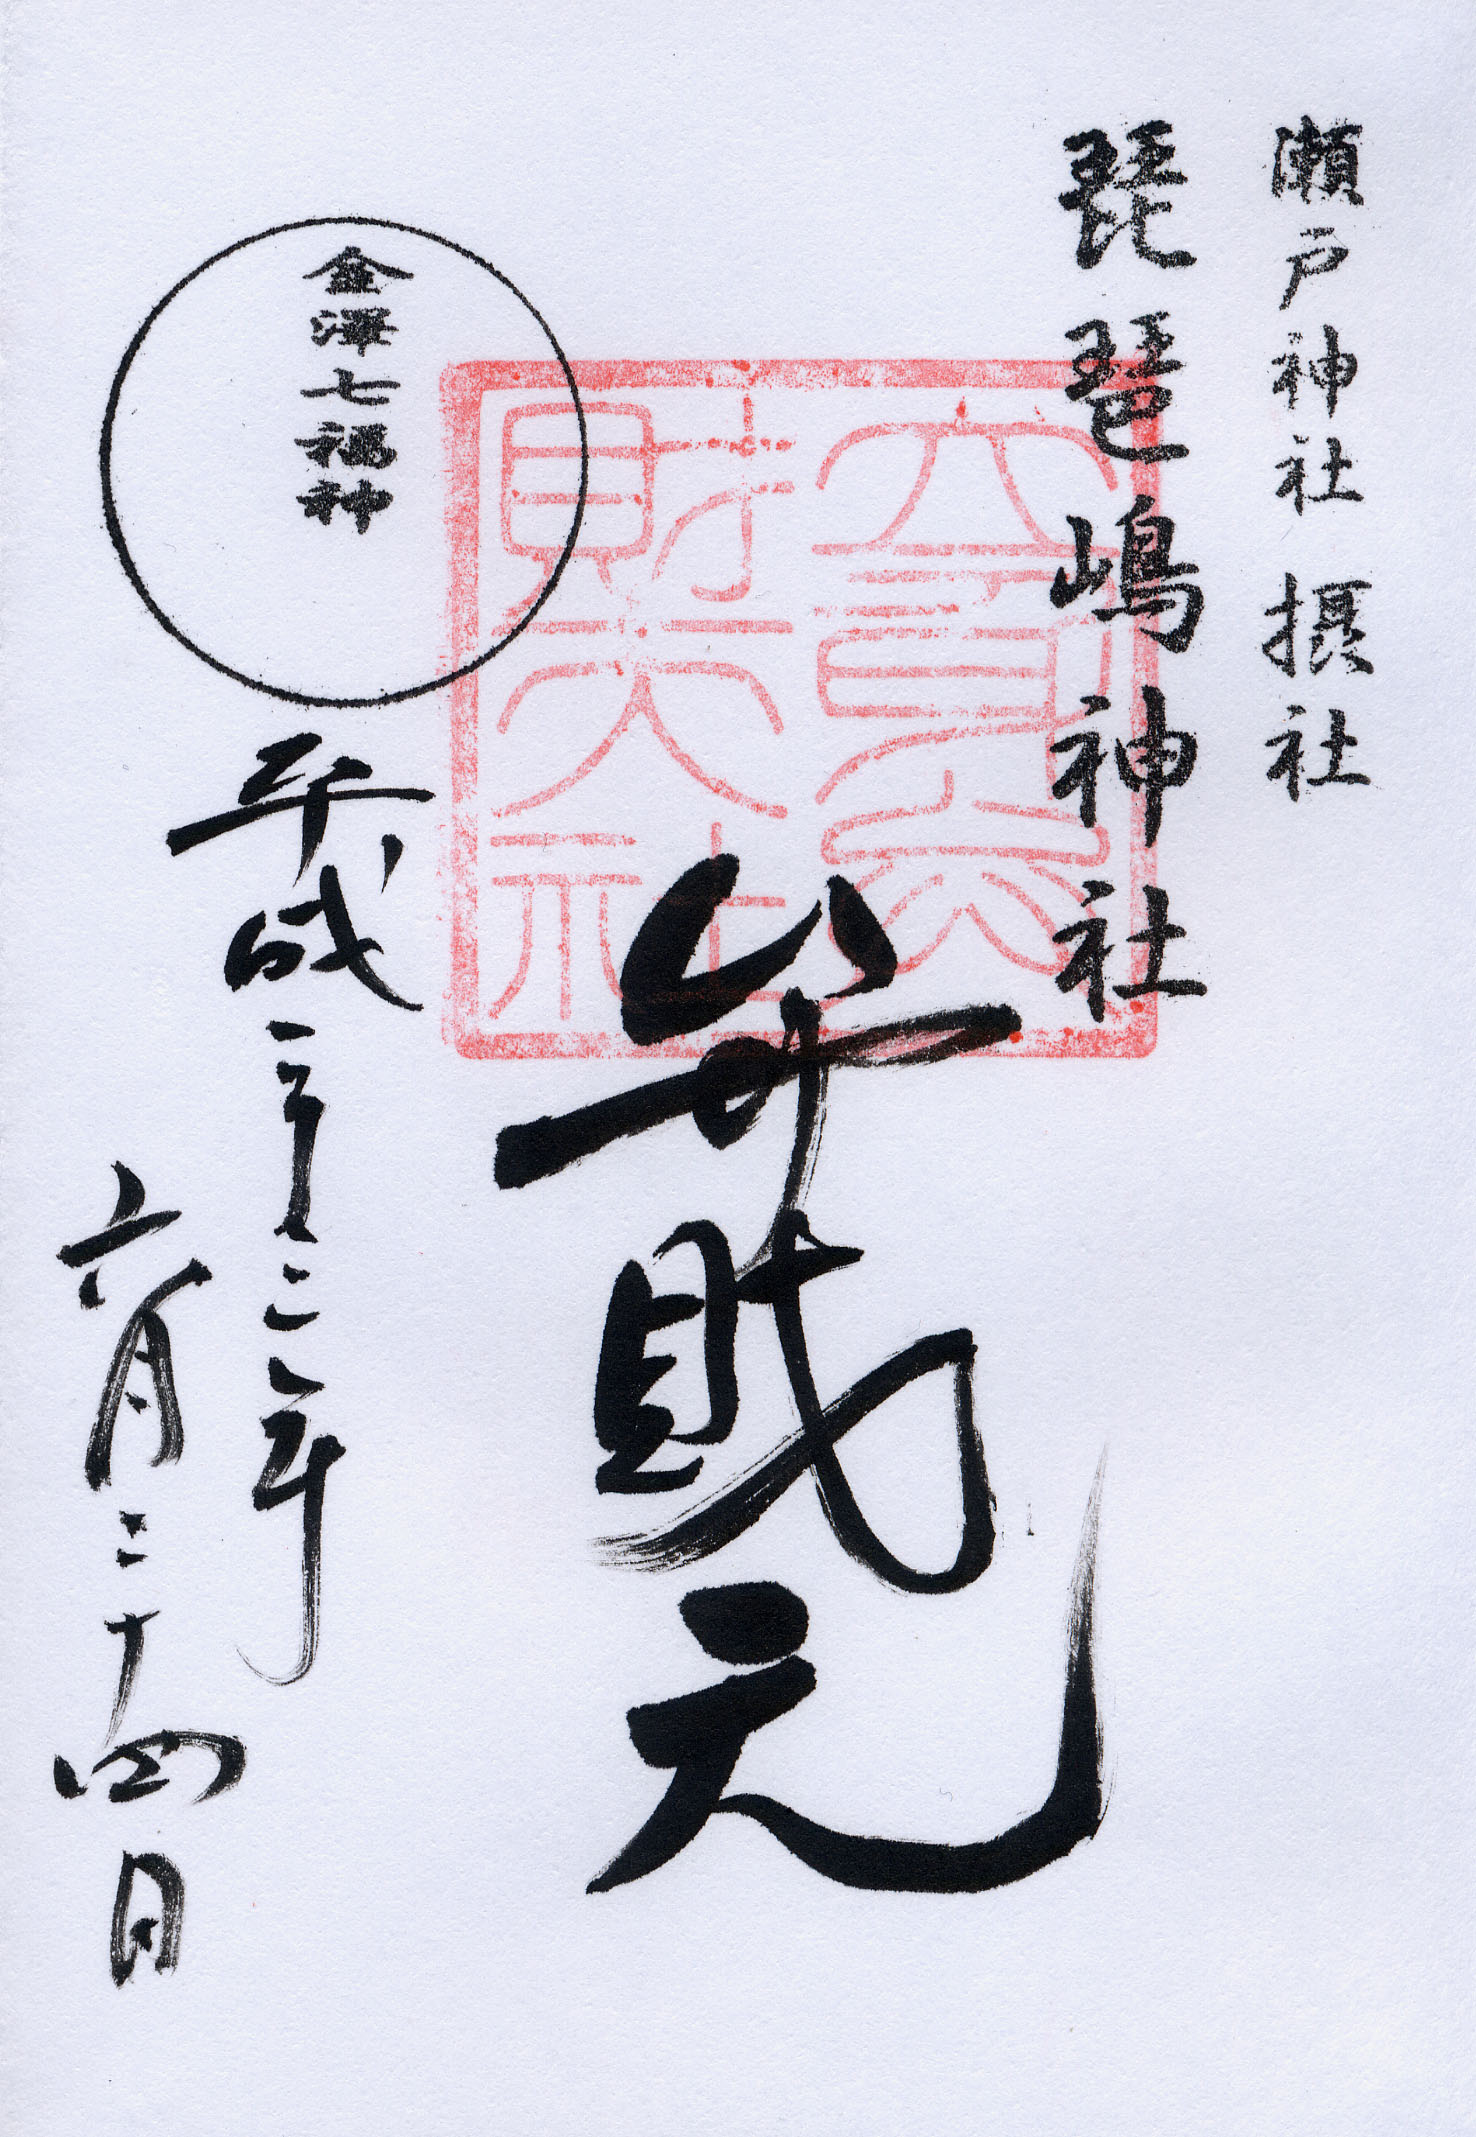 瀬戸神社 摂社
琵琶嶋神社
立身弁
財天社
弁財天
金澤七福神
平成二十二年
六月二十四日